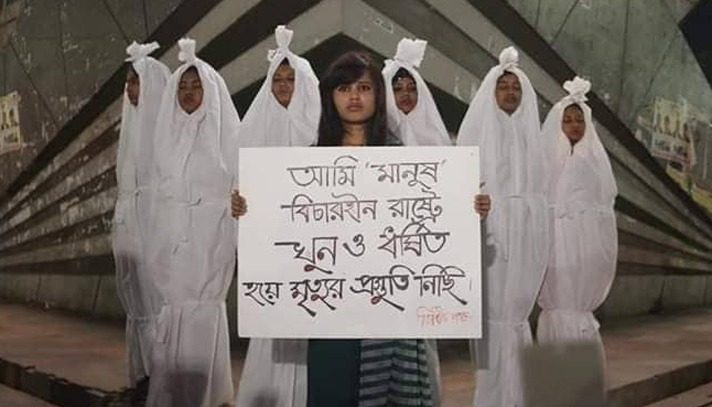 আমি 'মানুষ'
বিচারহীন রাষ্ট্রে
খুন ও ধর্ষিত
হয়ে মৃত্যুর প্রস্তুতি নিচ্ছি।